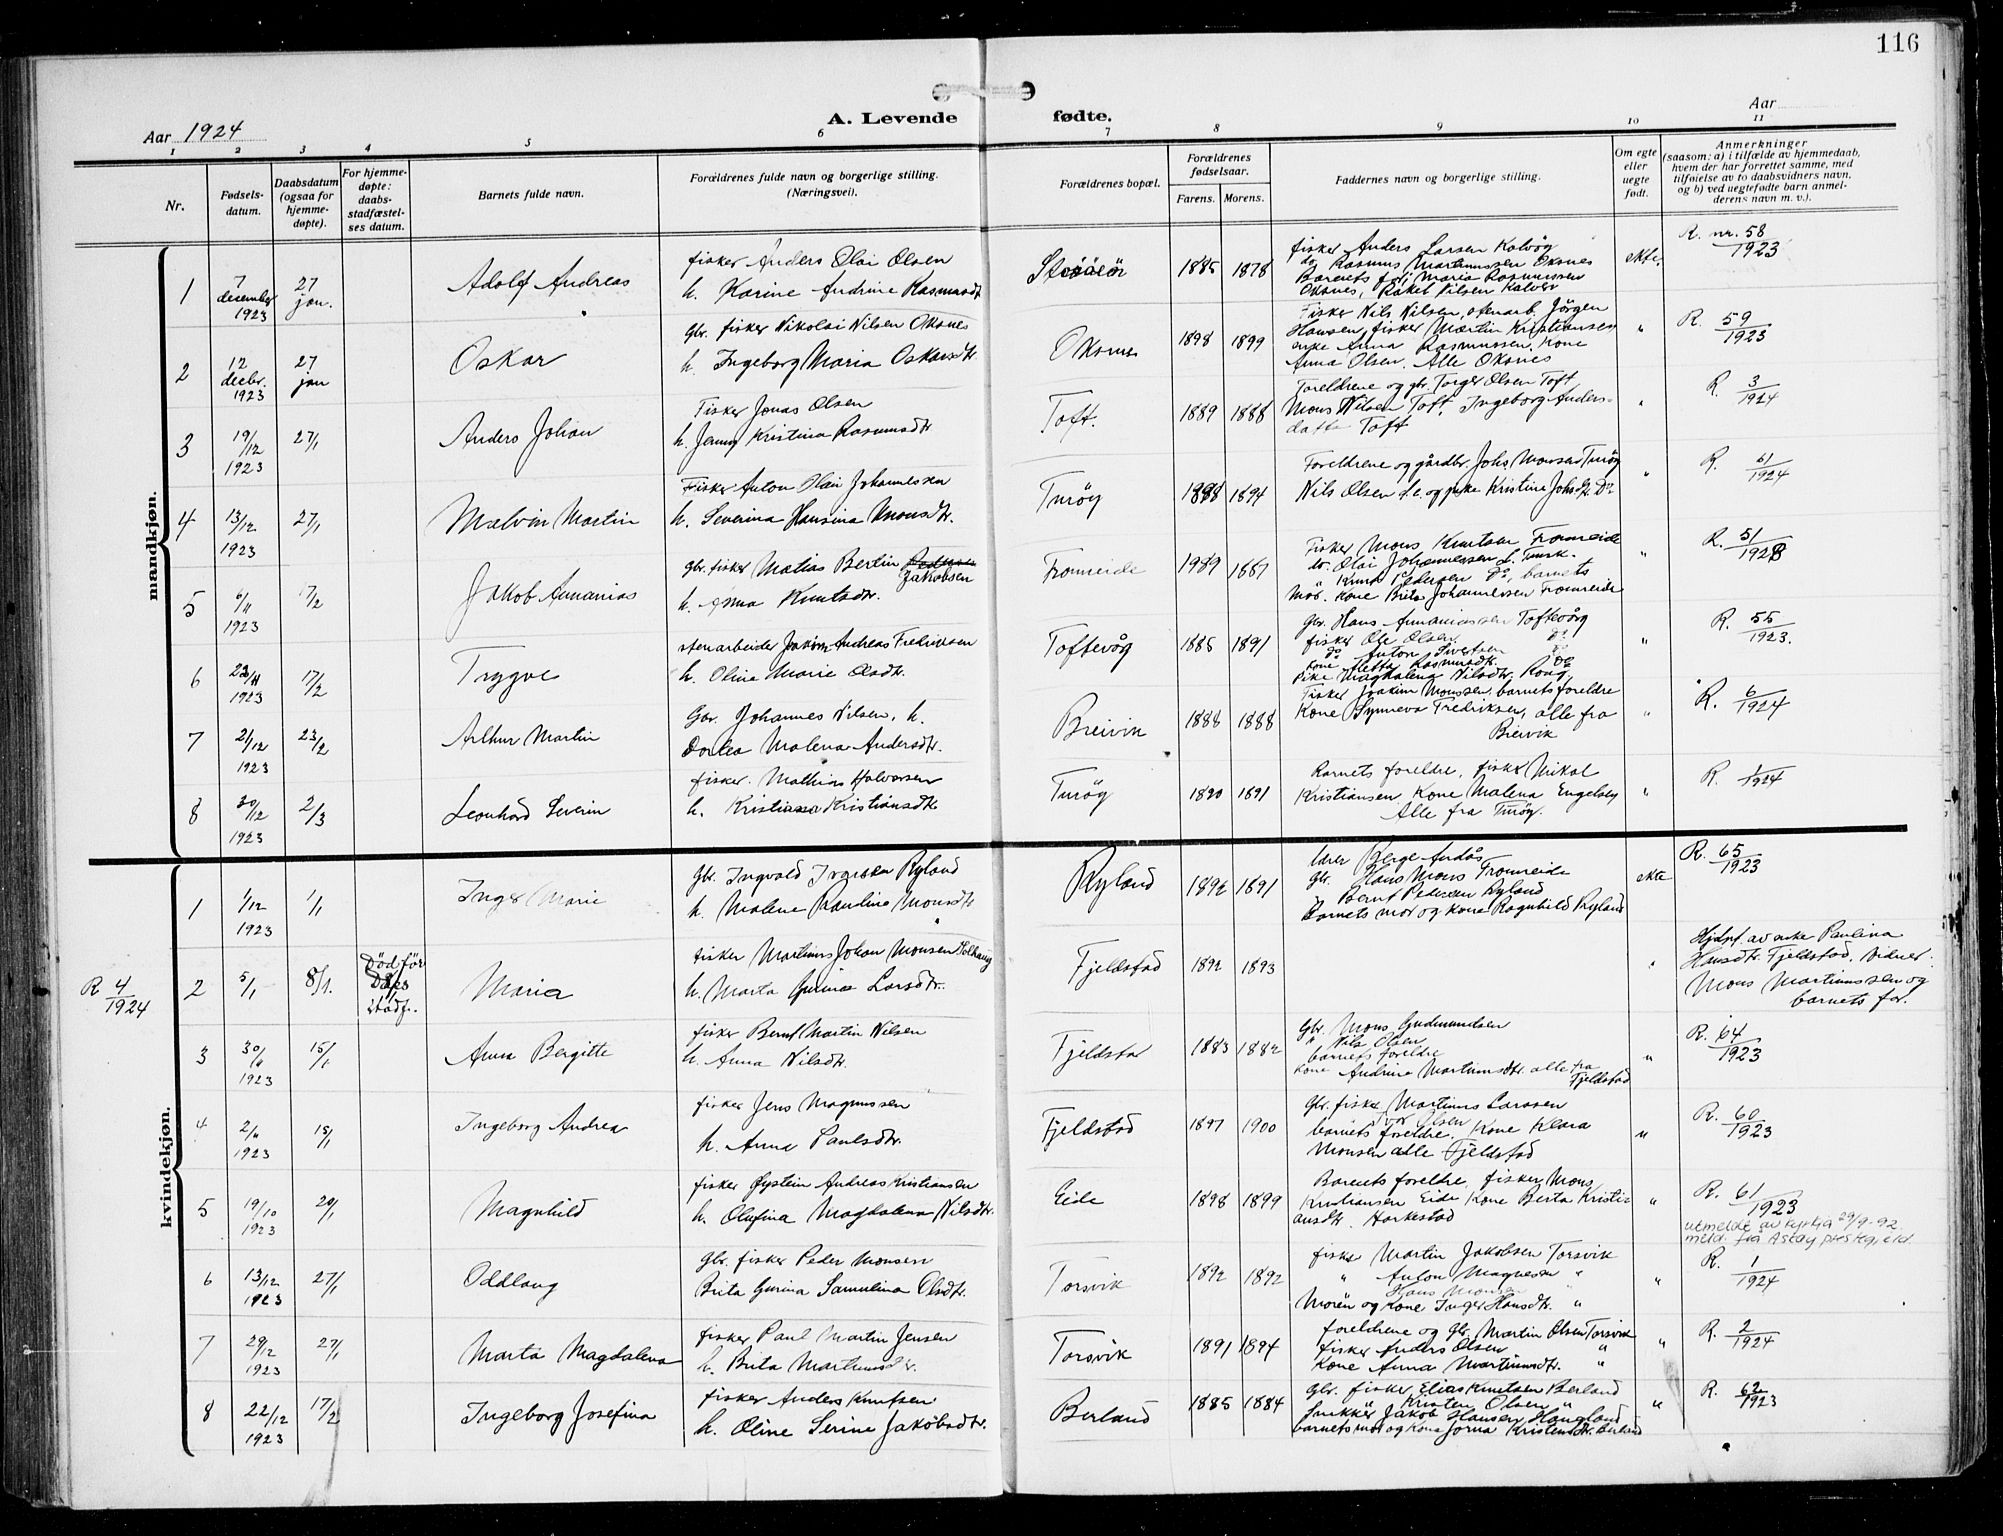 116
Aar 1924
A. Levende fødte.
Aar
1 2 3 4 5 6 7 8 9 10 11
Nr.
Fødsels-
datum.
Daabsdatum
(ogsaa for
hjemme-
døpte).
For hjemme-
døpte:
daabs-
stadfæstel-
ses datum.
Barnets fulde navn.
Forældrenes fulde navn og borgerlige stilling.
(Næringsvei).
Forældrenes bopæl.
Forældrenes
fødselsaar.
Farens. Morens.
Faddernes navn og borgerlige stilling.
Om egte
eller
uegte
født.
Anmerkninger
(saasom: a) i tilfælde av hjemmedaab,
hvem der har forrettet samme, med
tilføielse av to daabsvidners navn,
og b) ved uegtefødte barn anmel-
derens navn m. v.).
mandkjøn.
1
7
december
1923
27
jan.
Adolf Andreas
fisker Anders Olai Olsen
h. Karine Andrine Rasmusdt
1885 1878
fisker Anders Larsen Kalvøg
do Rasmus Martinussen Oksnes
Barnets far, Maria Rasmussen
Oksnes, Rakel Nilsen Kalvøg
ekte.
R. nr. 58
1923
2
12
decbr.
1923
27
jan
Oskar
Gbr. fisker Nikolai Nilsen Oksnes
h. Ingeborg Maria Oskarsdt
Oksnes
1898 1899
Fisker Nils Nilsen, stenarb. Jörgen
Hansen, fisker Martin Kristiansen
enke Anna Rasmussen, kone
Anna Olsen. Alle Oksnes
"
R. 59
1923
3
19/12
1923
27/1
Anders Johan
Fisker Jonas Olsen
h. Janny Kristina Rasmusdtr
Toft.
1889 1888
Foreldrene og gbr. Torger Olsen Toft
Mons Nilsen Toft, Ingeborg Anders-
datter Toft
"
R. 3
1924
4
13/12
1923
27/1
Malvin Martin
Fisker Anton Olai Johannessen
h. Severina Hansina Monsdtr.
Turøy
1888 1894
Foreldrene og gårdbr. Johs Monsen Turøy
Nils Olsen s.e. og pike Kristine Johsdtr. Do
"
R. 61
1924
5
6/11
1923
17/2
Jakob Annanias
Gbr. fisker Matias Bertin Jakobsen
h. Anna Knutsdtr.
Fromreide
1989 1887
Fisker Mons Knutsen Fromreide
do. Olai Johannessen
" Knut Pedersen Do, barnets
mor. Kone Brita Johannessen Fromreide
"
R. 51
1923
6
23/11
1923
17/2
Trygve
stenarbeider Joakim Andreas Fredriksen
h. Oline Marie Olsdtr.
Toftevåg
1885 1891
Gbr. Hans Annaniassen Toftevåg
fisker Ole Olsen Do
do Anton Sivertsen Do
kone Metta Rasmusdtr. Do
Pike Magdalena Nilsdtr. Roag
"
R. 55
1923.
7
21/12
1923
23/2
Arthur Martin
Gbr. Johannes Nilsen, h.
Dortea Malena Andersdtr.
Breivik
1888 1888
Fisker Joakim Monssen, barnets foreldre
Kone Synneva Fredriksen, alle fra
Breivik
"
R. 6
1924
8
30/12
1923
2/3
Leonhard Severin
fisker. Mathias Halvorsen
h. Kristiana Kristiansdtr
Turøy
1890 1891
Barnets foreldre, fisker Nikol
Kristiansen Kone Malena Engelsen
Alle fra Turøy.
"
R. 1
1924
kvindekjøn.
1
1/12
1923
1/1
Inger Marie
Gbr. Ingvald Ivarsen Ryland
h. Malene Paulina Monsdtr
Ryland
1892 1891
lærer Berge Andås
Gbr. Hans Mons Fromreide
" Bernt Petersen Ryland
Barnets mor og kone Ragnhild Ryland
ekte
R. 65
1923
R 4
1924
2
5/1
8/1.
Død før
Daabs
stadf.
Maria
fisker Martinus Johan Monsen Solhaug
h. Marta Gurina Larsdtr.
Fjeldstad
1892 1893
"
Hjdpt. av enke Paulina
Hansdtr. Fjeldstad. Vidner:
Mons Martinussen og
barnets far.
3
30/11
1923
15/1
Anna Bergitte
fisker Bernt Martin Nilsen
h. Anna Nilsdtr.
Fjeldstad
1883 1882
Gbr. Mons Gudmundsen
" Nils Olsen
barnets foreldre
kone Andrine Martinusdtr. alle fra
Fjeldstad
"
R. 64
1923
4
2/11
1923
15/1
Ingeborg Andrea
fisker Jens Magnussen
h. Anna Paulsdtr.
Fjeldstad
1897 1900
Gbr. fisker Martinus Larssen
Olsen
barnets foreldre. Kone Klara
Monsen alle Fjeldstad
"
R. 60
1923
5
19/10
1923
20/1
Magnhild
fisker Øystein Andreas Kristiansen
h. Olufina Magdalena Nilsdtr.
Eide
1898 1899
Barnets foreldre, fisker Mons
Kristiansen Eide Kone Berta Kristi-
ansdtr. Harkestad
"
R. 61
1923
utmeldt av kyrkja 29/9-92
meld. frå Askøy prestegjeld.
6
13/12
1923
27/1
Oddlaug
Gbr. fisker Peder Monsen
Brita Gurina Samuline Olsdtr.
Torsvik
1892 1892
fisker Martin Jakobsen Torsvik
" Anton Magnesen "
Hans Monsen "
Moren og Kone Inger Hansdtr. "
"
R. 1
1924
7
29/12
1923
27/1
Marta Magdalena
fisker Paul Martin Jensen
h. Brita Martinusdtr.
Torsvik
1891 1894
foreldrene og Gbr. Martin Olsen Torsvik
fisker Anders Olsen "
Kone Anna Martinusdtr. "
"
R. 2
1924
8
22/12
1923
17/2
Ingeborg Josefina
fisker Anders Knutsen
h. Oline Serine Jakobsdtr.
Berland
1885 1884
Gbr. fisker Elias Knutsen Berland
" Kristen Olsen "
Snikker Jakob Hansen Haugland
barnets mor og kone Jorna Kristensdtr. Berland
"
R. 62
1923